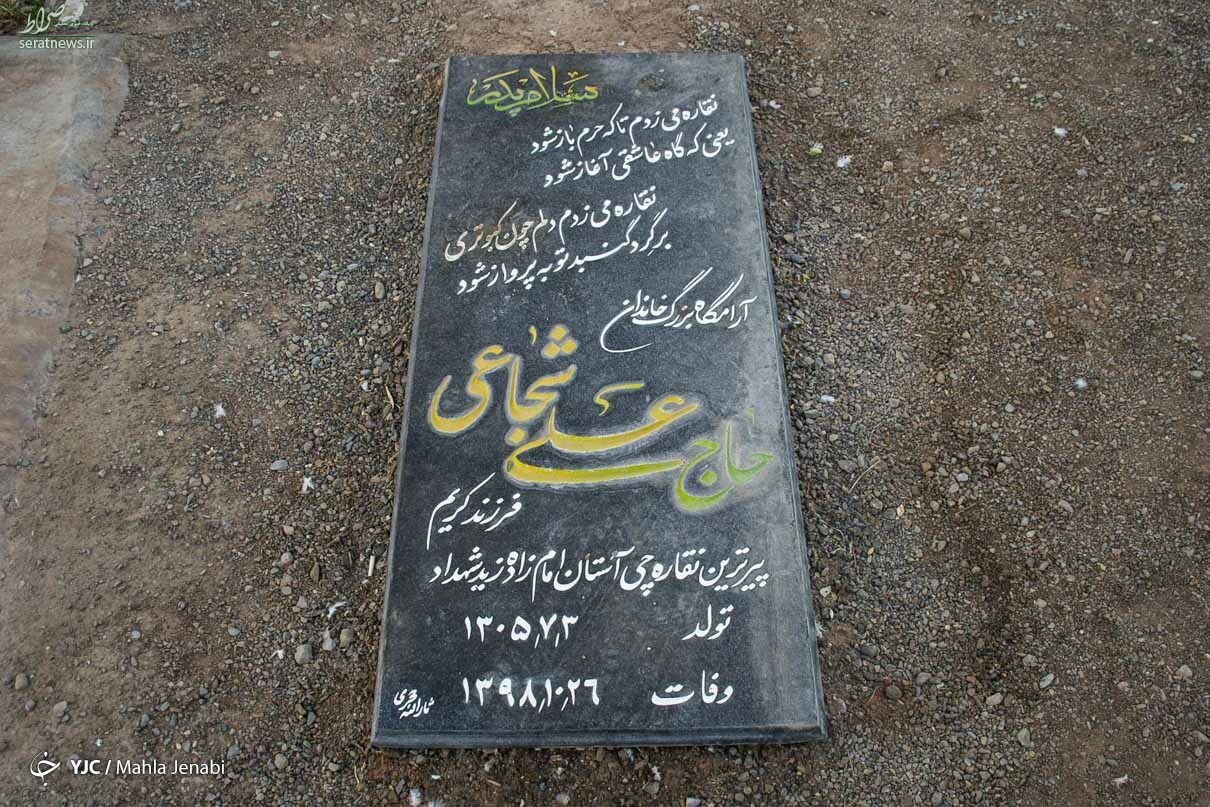 صراط
seratnews.ir
سلام پدر
نقاره می زدم تا که حرم باز شود
یعنی که گاه عاشقی آغاز شود
نقاره می زدم دلم چون کبوتری
بر گرد گنبد تو به پرواز شود
آرامگاه بزرگ خاندان
حاج علی شجاعی
فرزند کریم
پیرترین نقاره چی آستان امام زاده زید شهداد
تولد ۱۳۰۵,۷,۳
وفات ۱۳۹۸,۱۰,۲۶
YJC / Mahla Jenabi